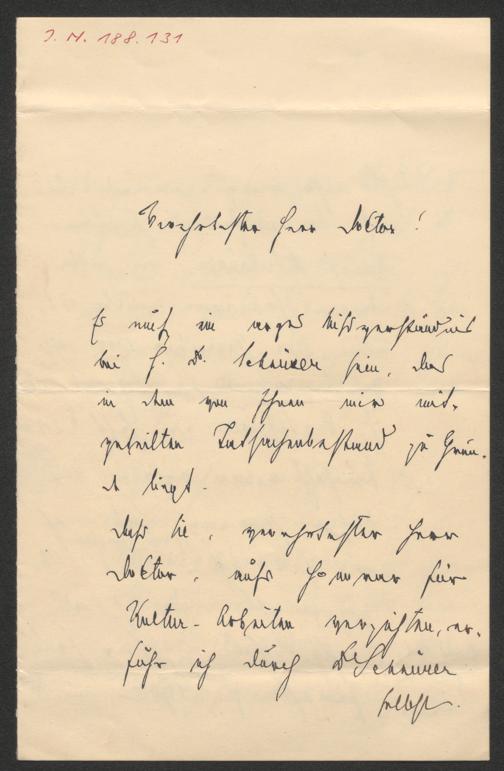 J. N. 188.131
Verehrtester Herr Doctor!
Es muß ein arges Mißverständnis
bei H. Dr. Schnürer sein, das
in dem von Ihnen mir mit-
geteilten Tatsachenbestand zu Grun-
de liegt.
Daß Sie, verehrtester Herr
Doctor, aufs Honorar für
Kultur-Arbeiten verzichten, er-
fuhr ich durch Dr Schnürer
selbst.